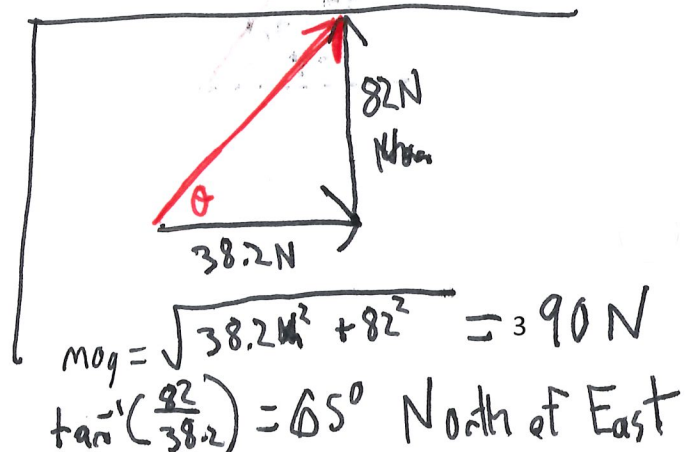 82N
θ
38.2N
mag = √38.2² + 82² = 3 90 N
tan⁻¹(82/38.2) = 65° North of East